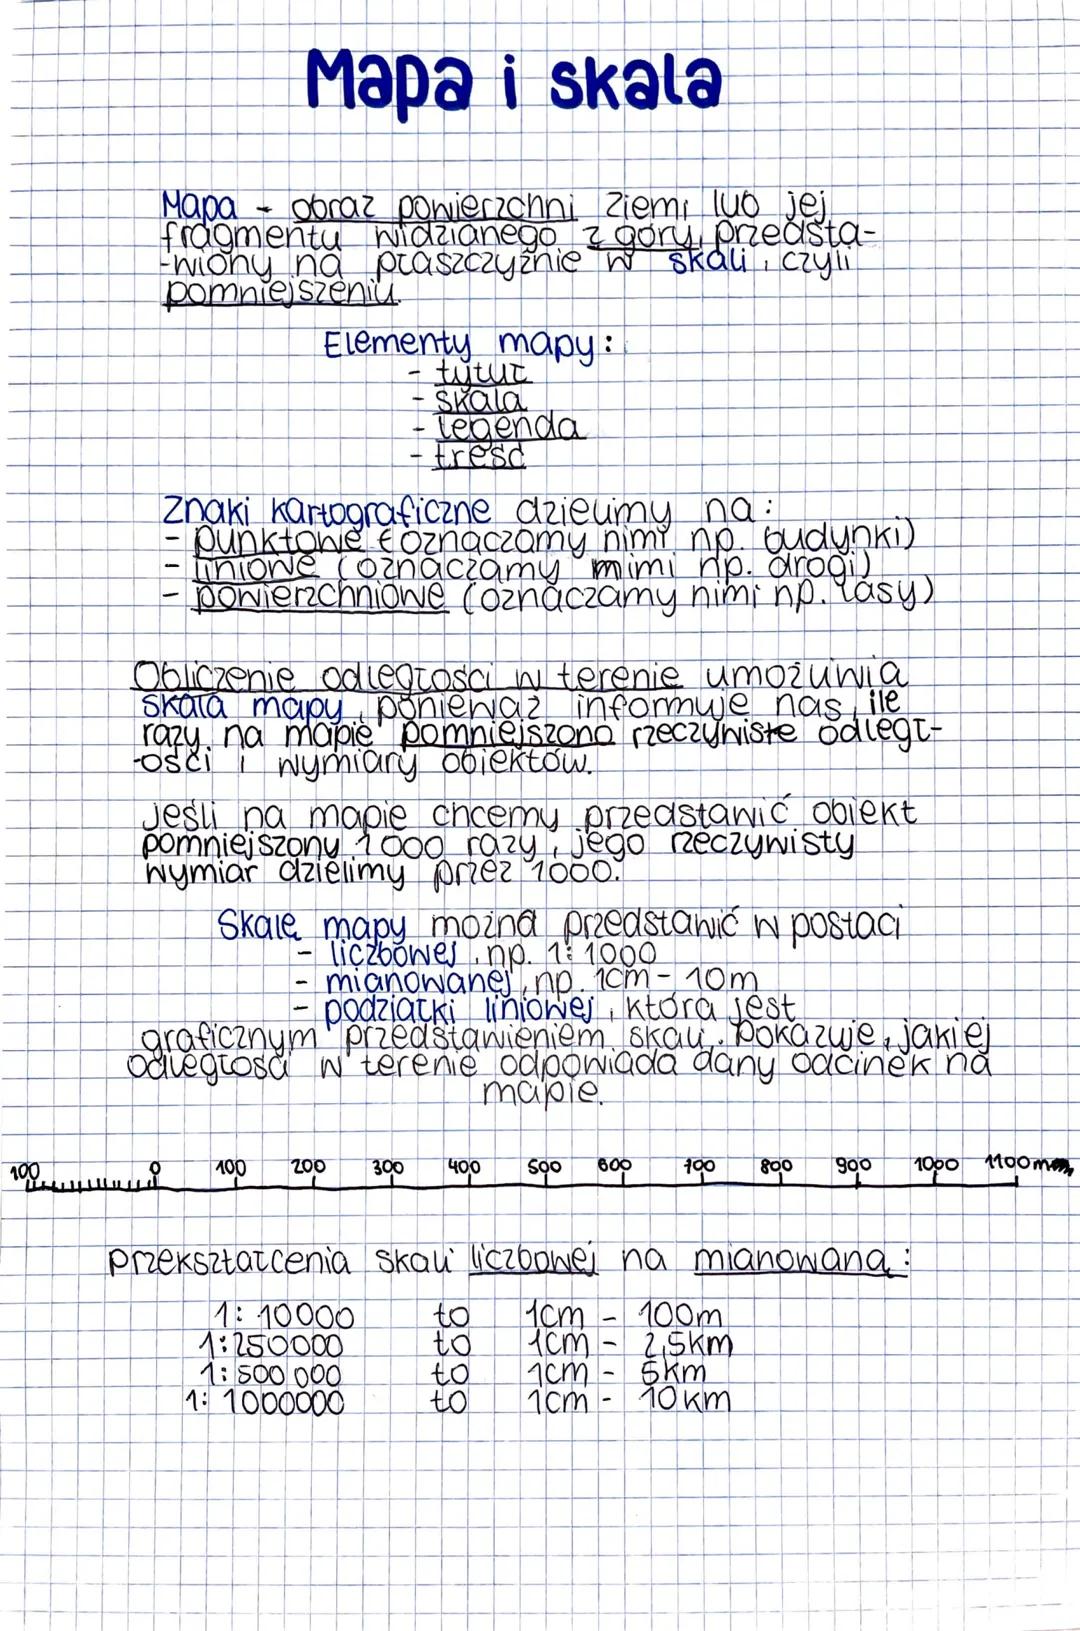 Mapa i skala
Mapa - obraz powierzchni ziemi lub jej
fragmentu widzianego z góry, przedsta-
-wiony na płaszczyźnie w skali, czyli
pomniejszeniu.
Elementy mapy:
- tytuł
- skala
- legenda
- treść
Znaki kartograficzne dzielimy na:
- punktowe (oznaczamy nimi np. budynki)
- liniowe (oznaczamy mimi np. drogi)
- powierzchniowe (oznaczamy nimi np. lasy)
Obliczenie odległości w terenie umożliwia
skala mapy, ponieważ informuje nas, ile
razy na mapie pomniejszono rzeczywiste odległ-
-ości i wymiary obiektów.
Jeśli na mapie chcemy przedstawić obiekt
pomniejszony 1000 razy, jego rzeczywisty
wymiar dzielimy przez 1000.
Skalę mapy można przedstawić w postaci
- liczbowej, np. 1:1000
- mianowanej, np. 1cm - 10m
- podziałki liniowej, która jest
graficznym przedstawieniem skali. Pokazuje, jakiej
odległości w terenie odpowiada dany odcinek na
mapie.
100 0 100 200 300 400 500 600 700 800 900 1000 1100 m
przekształcenia skali liczbowej na mianowaną:
1: 10000 to 1cm - 100m
1:250000 to 1cm - 2,5km
1:500 000 to 1cm - 5km
1: 1000000 to 1cm - 10km